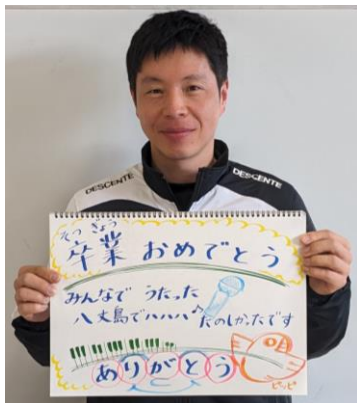 DESCENTE
DESCENTE
そつ ぎょう
卒業 おめでとう
みんなで うたった
八丈島でハハハ♪たのしかったです
ありがとう
ピッピ